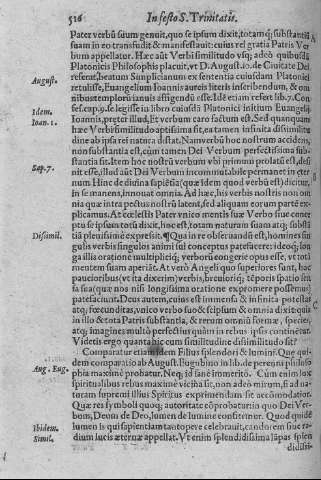 516 In festo S. Trinitatis.
Pater verbū suum genuit, quo se ipsum dixit, totamq́; substantiā
suam in eo transfudit & manifestauit: cuius rei gratia Patris Ver
bum appellatur. Hæc aūt Verbi similitudo vsq; adeò quibusdā
Platonicis Philosophis placuit, vt D. August. 10. de Ciuitate Dei
referat, beatum Simplicianum ex sententia cuiusdam Platonici
August.
retulisse, Euangelium Ioannis aureis literis inscribendum, & om
nibus templorū ianuis affigendū esse. Ide etiam refert lib. 7. Con
fes. cap. 9. se legisse in libro cuiusdā Platonici initium Euangelij
Idem.
Ioan. 1.
Ioannis, præter illud, Et verbum caro factum est. Sed quanquā
hæc Verbi similitudo aptissima sit, ea tamen infinita dissimilitu
dine ab ipsa rei natura distat. Nam verbū hoc nostrum accidens,
non substantia est, cùm tamen Dei Verbum perfectissima sub-
stantia sit. Item hoc nostrū verbum vbi primum prolatū est, desi
nit esse, illud aūt Dei Verbum incommutabile permanet in eter
Sap. 7.
num. Hinc de diuina sapiētia (quæ idem quod verbū est) dicitur,
In se manens, innouat omnia. Ad hæc, his verbis nostris non om
nia quæ intra pectus nostrū latent, sed aliquam eorum partē ex-
plicamus. At cœlestis Pater vnico mentis suæ Verbo siue conce-
ptu se ipsum totū dixit, hoc est, totam naturam suam atq; substā
tiā plenissimè expressit. ¶ Qua in re obseruandū est, homines sin
Dissimil.
gulis verbis singulos animi sui conceptus patefacere: ideoq́; lon
ga illis oratione multiplicíq; verborū congerie opus esse, vt totā
mentem suam aperiāt. At verò Angeli quo superiores sunt, hoc
paucioribus (vt ita dixerim) verbis, breuioriq́; tēporis spatio sen
sa sua (quæ nos nisi longissima oratione expromere possemus)
patefaciunt. Deus autem, cuius est immensa & infinita potestas
atq; fœcunditas, vnico verbo suo & se ipsum & omnia dixit: quia
in illo & tota Patris substantia, & rerum omniū formæ, species,
atq; imagines multò perfectius quàm in rebus ipsis continētur.
Videtis ergo quanta hæc cum similitudine dissimilitudo sit?
Comparatur etiam idem Filius splendori & lumini. Que qui-
dem comparatio ab August. Eugubino in lib. de perenni philoso-
Aug. Eug.
phia maximè probatur. Neq; id sanè immeritò. Cùm enim lux
spiritualibus rebus maximè vicina sit, non adeò mirum, si ad na-
turam supremi illius Spiritus exprimendam sit accōmodatior.
Quæ res symboli quoq; autoritate cōprobatur: in quo Dei Ver-
bum, Deum de Deo, lumen de lumine confitemur. Quod quidē
lumen is qui sapientiam tantopere celebrauit, candorem siue ra-
Ibidem.
Simil.
dium lucis æternæ appellat. Vt enim splendidissima lāpas splen
didissi-